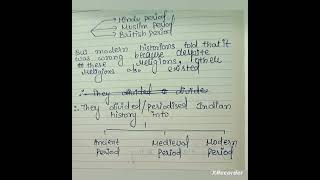 Hindu period
Muslim Period
British Period
But modern historians told that it
was wrong because despite
these religions, other
religions also existed
∴ They divided to divide
∴ They divided/periodised Indian
history into
Ancient Medieval Modern
Period Period Period
XRecorder